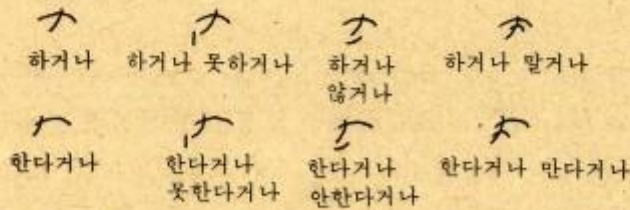 하거나 하거나 못하거나 하거나 하거나 말거나
않거나
한다거나 한다거나 한다거나 한다거나 만다거나
못한다거나 안한다거나